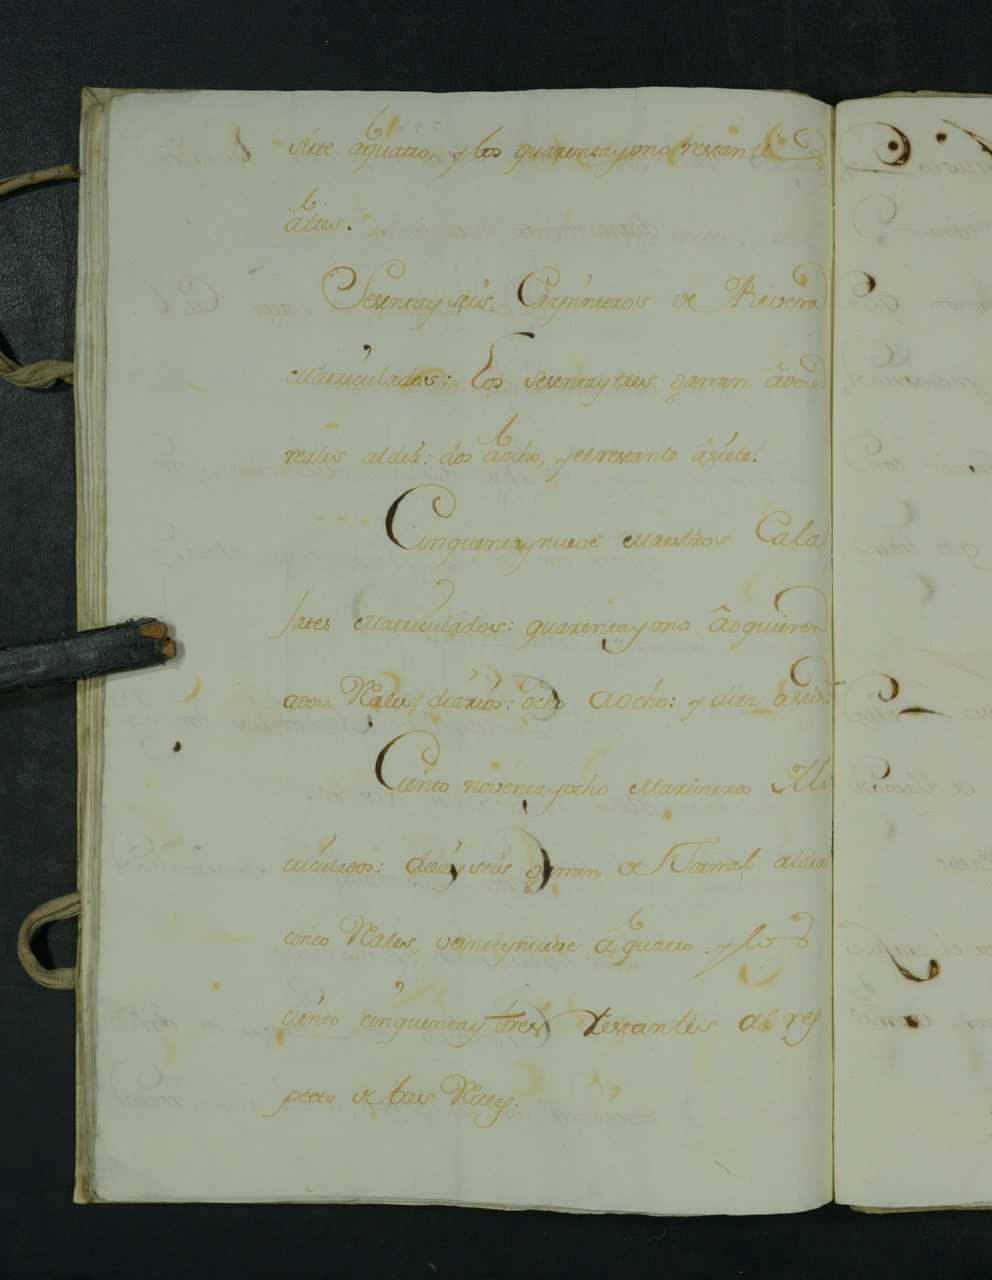 siete â quatro, y los quarenta y uno restantes
â tres.
Sesenta y seis Carpinteros de Rivera
Matriculados: Los sesenta y tres ganan â doce
reales al dia: dos âocho, y el restante â siete.
Cinquenta y nueve Maestros Cala
fates Matriculados: quarenta y uno âdquieren
adoce Rales diarios: ocho aocho: y diez aseis:
Ciento noventa y ocho Marineros Ma
triculados: diez y seis ganan de Jornal aldia
cinco Rales, veinte y nueve â quatro y los
ciento cinquenta y tres restantes al res
pecto de tres Rales.